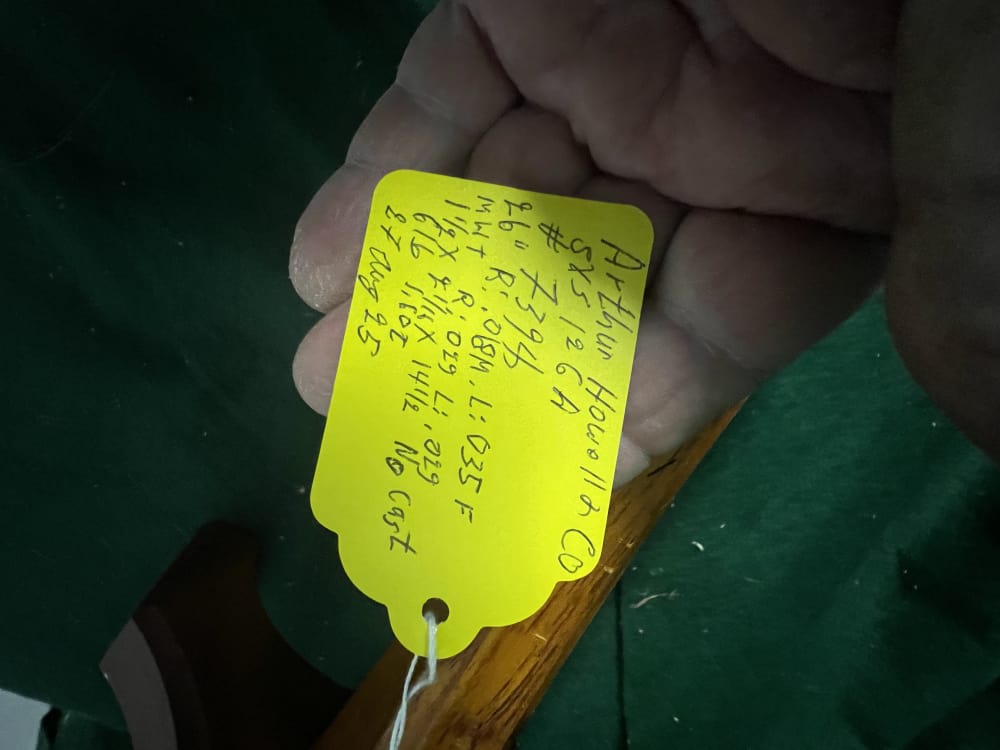 Arthur Howell & Co
SXS 12 GA
# 7394
26" R: .08M. L: 035 F
MWT R. 029 L: .029
1 1/2 X 2 1/4 X 14 1/2 No Cast
6 lb 1.6oz
27 Aug 25